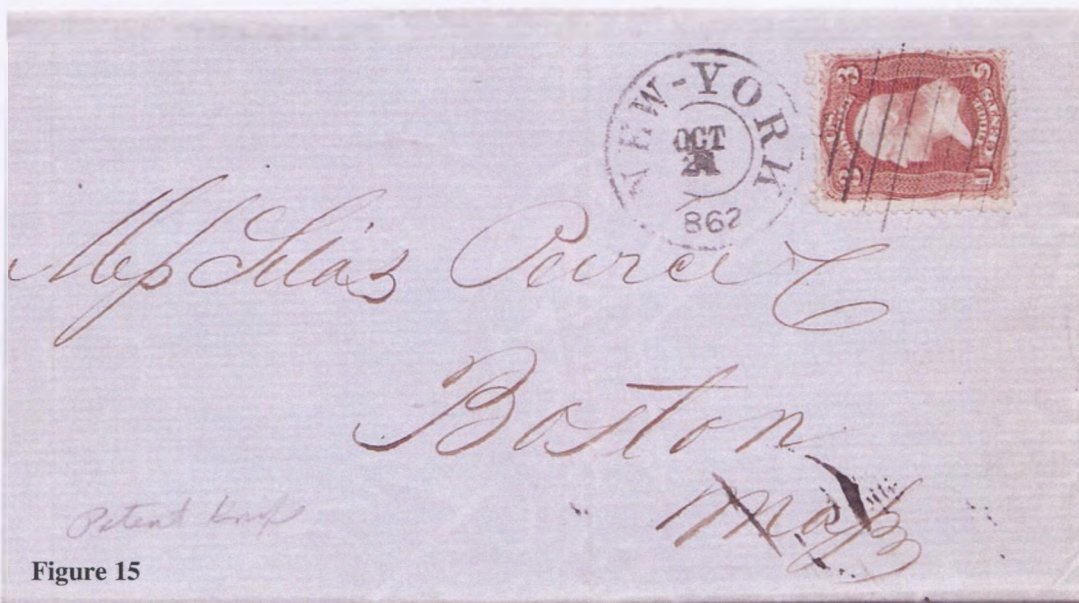 NEW-YORK
OCT
862
3 U S
Mess Silas Peirce C
Boston
Mass
Patent Knife
Figure 15